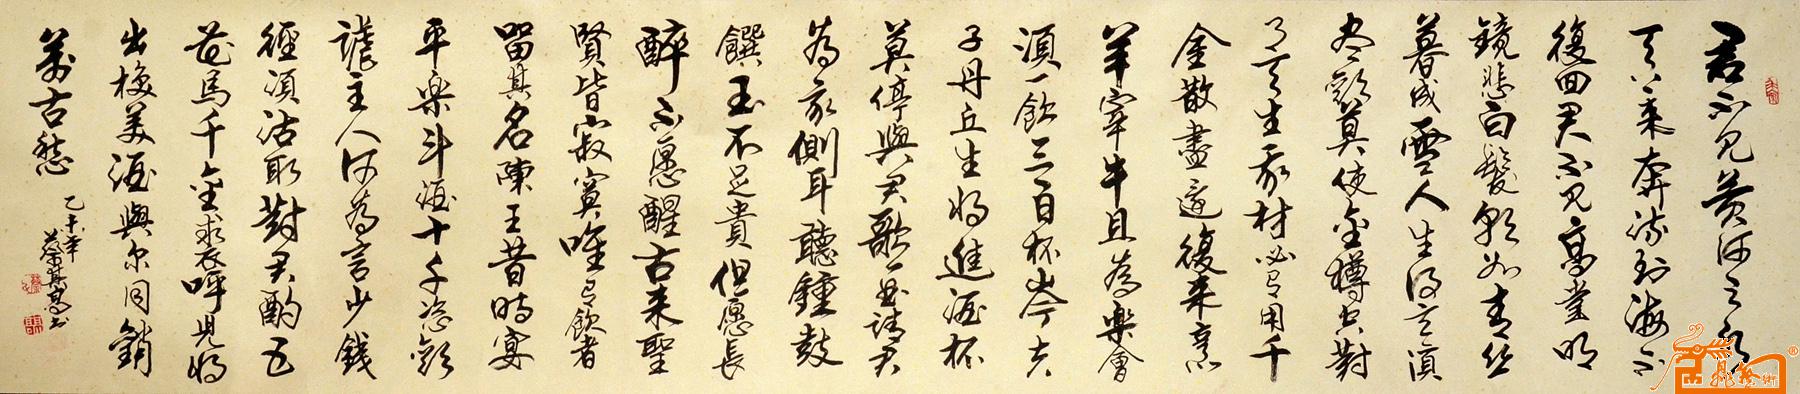 君不見黄河之水
天上来奔流到海不
復回君不見高堂明
鏡悲白髮朝如青丝
暮成雪人生得意須
尽歡莫使金樽空對
月天生我材必有用千
金散盡還復来烹
羊宰牛且為樂會
須一飲三百杯岑夫
子丹丘生将進酒杯
莫停與君歌一曲請君
為我側耳聽鍾鼓
饌玉不足貴但愿長
醉不愿醒古来聖
賢皆寂寞唯有飲者
留其名陳王昔時宴
平樂斗酒十千恣歡
謔主人何為言少錢
徑須沽取對君酌五
花馬千金裘衣呼児将
出換美酒與尔同銷
萬古愁
乙未年 蔡其高书